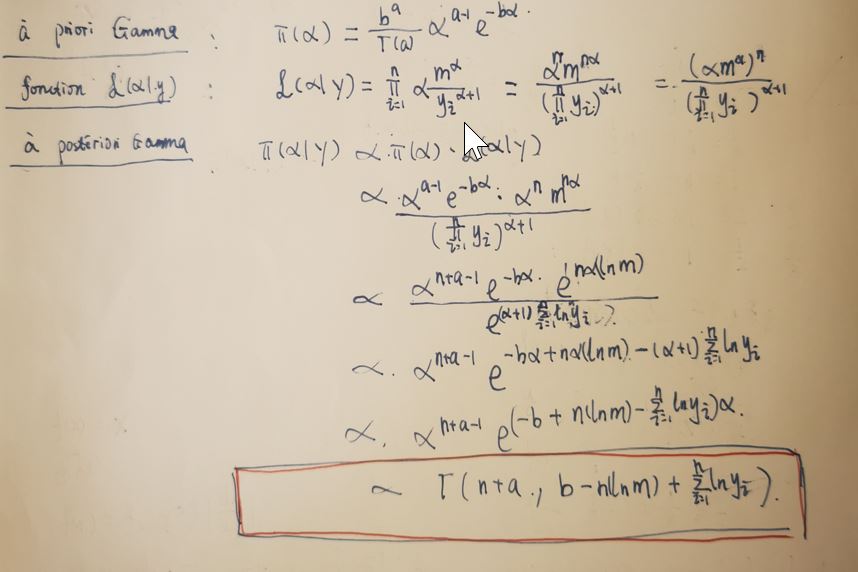 à priori Gamma : π(α) = b^a / Γ(a) α^{a-1} e^{-bα}.
fonction L(α|y) : L(α|y) = ∏_{i=1}^{n} α m^α / y_i^{α+1} = α^n m^{nα} / (∏_{i=1}^{n} y_i)^{α+1} = (α m^α)^n / (∏_{i=1}^{n} y_i)^{α+1}
à posteriori Gamma : π(α|y) ∝ π(α) · L(α|y)
∝ α^{a-1} e^{-bα} · α^n m^{nα} / (∏_{i=1}^{n} y_i)^{α+1}
∝ α^{n+a-1} e^{-bα} · e^{nα(ln m)} / e^{(α+1) ∑_{i=1}^{n} ln y_i}
∝ α^{n+a-1} e^{-bα + nα(ln m) - (α+1) ∑_{i=1}^{n} ln y_i}
∝ α^{n+a-1} e^{(-b + n(ln m) - ∑_{i=1}^{n} ln y_i)α}.
∝ Γ(n+a, b - n(ln m) + ∑_{i=1}^{n} ln y_i).